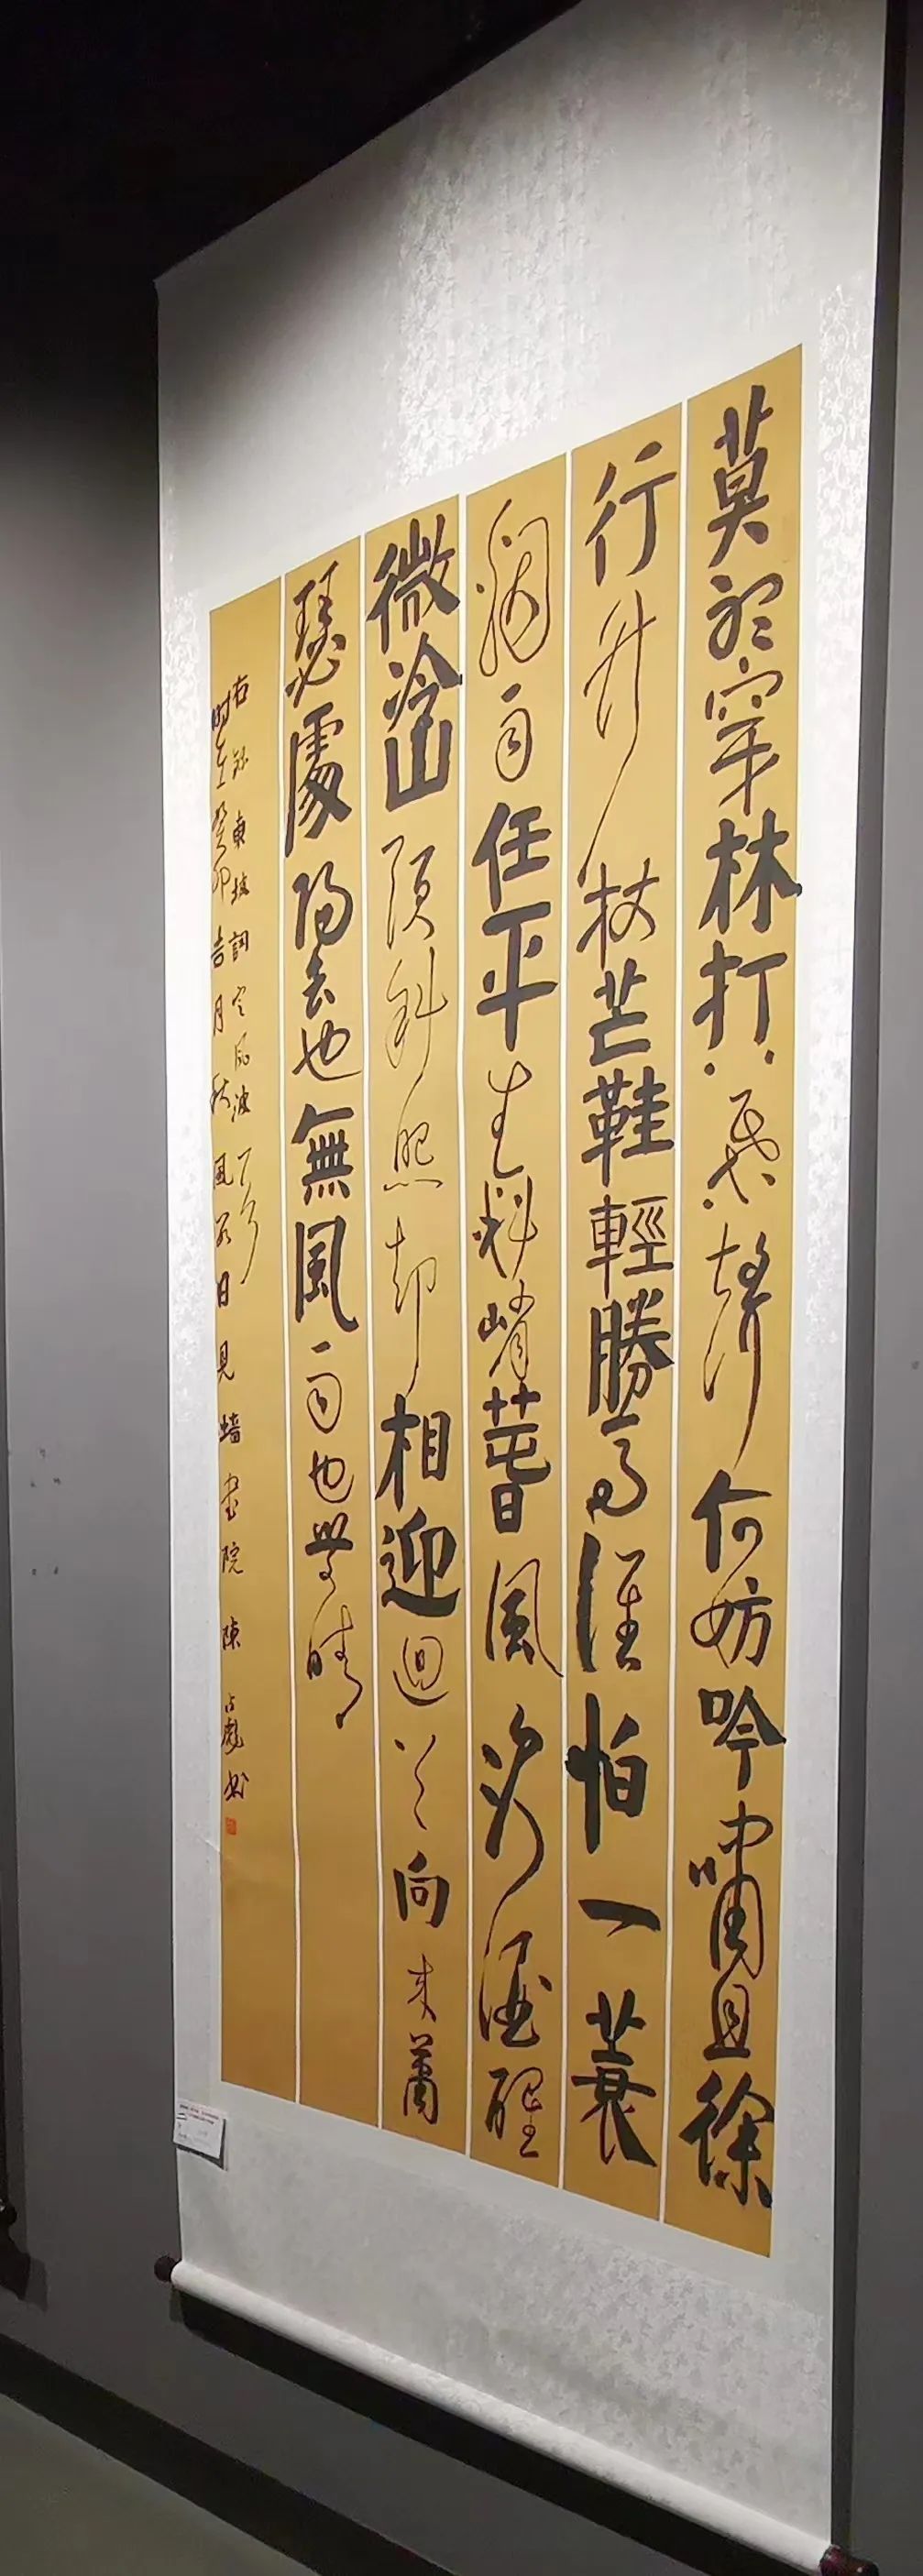 莫聽穿林打葉聲何妨吟嘯且徐
行竹杖芒鞋輕勝馬誰怕一蓑
烟雨任平生料峭萅風吹酒醒
微冷山頭斜照却相迎迴首向来蕭
瑟處歸去也無風雨也無晴
右録東坡詞定風波一首
時在癸卯吉月秋風日見書院陳占彪书